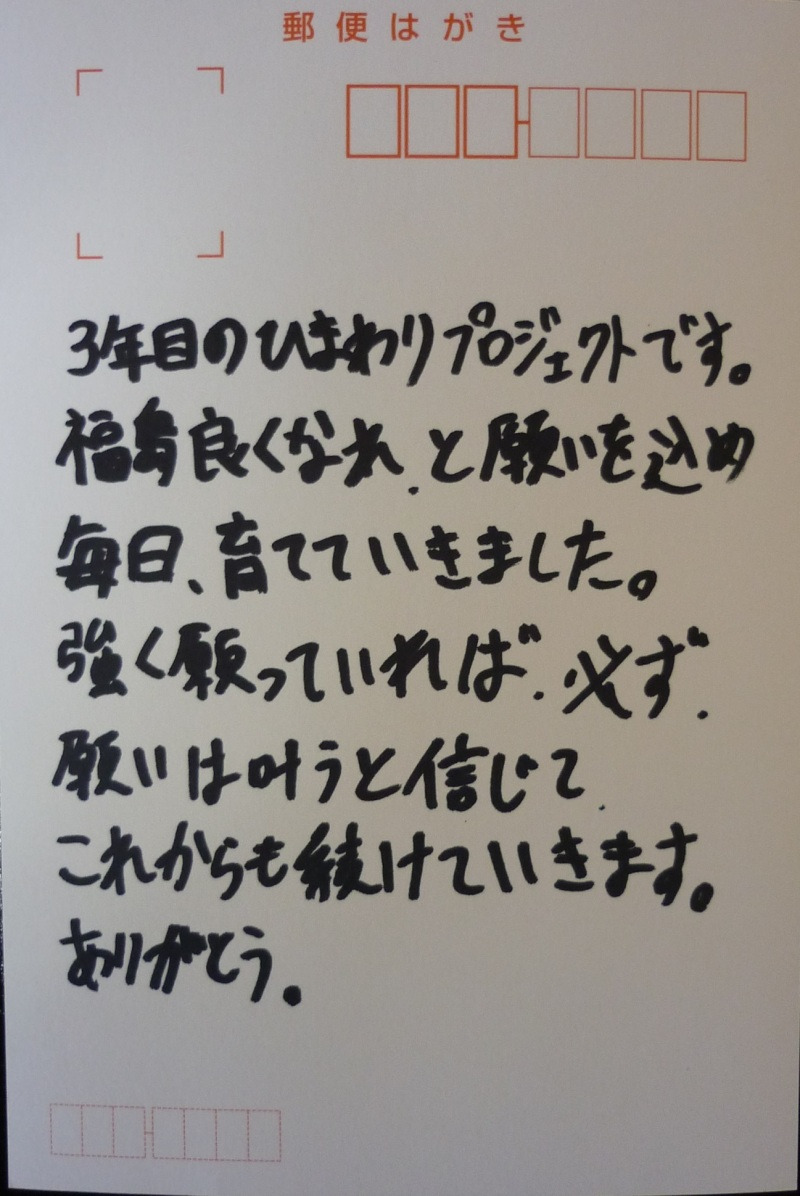 郵便はがき
3年目のひまわりプロジェクトです。
福島良くなれ、と願いを込め
毎日、育てていきました。
強く願っていれば、必ず、
願いは叶うと信じて、
これからも続けていきます。
ありがとう。